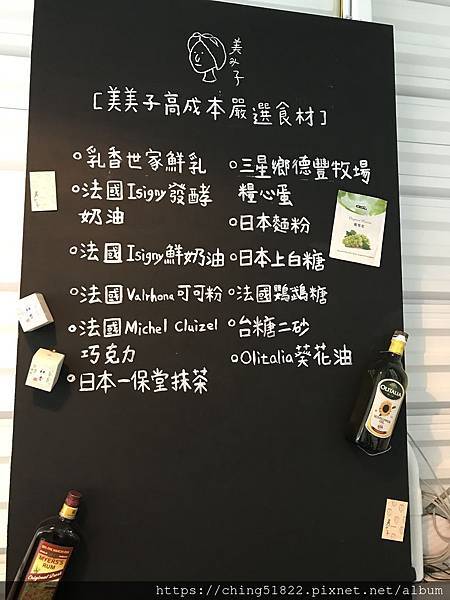 美み子
[美美子高成本嚴選食材]
○乳香世家鮮乳
○法國Isigny發酵
奶油
○法國Isigny鮮奶油
○法國Valrhona可可粉
○法國Michel Cluizel
巧克力
○日本一保堂抹茶
○三星鄉德豐牧場
糧心蛋
○日本麵粉
○日本上白糖
○法國鸚鵡糖
○台糖二砂
○Olitalia葵花油
OLITALIA
MYERS'S
RUM
Original Dark
https://ching51822.pixnet.net/album